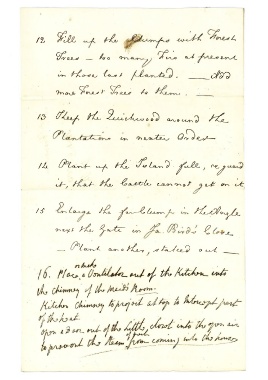 12 Fill up the Clumps with Forest
Trees — too many Firs at present
in those last planted. — Add
more Forest Trees to them. —
13 Keep the Quickwood around the
Plantations in neater Order
14 Plant up the Island full, & guard
it, that the Cattle cannot get on it
15 Enlarge the Clump in the Angle
next the Gate in Ja. Bird's Close
— Plant another, staked out —
16. Place a Ventilator out of the Kitchen into
the chimney of the Maid's Room.
Kitchen Chimney to project at top to Intercept part
of the Heat
open a Door out of the little closet into the open air
to prevent the Steam from coming into the house